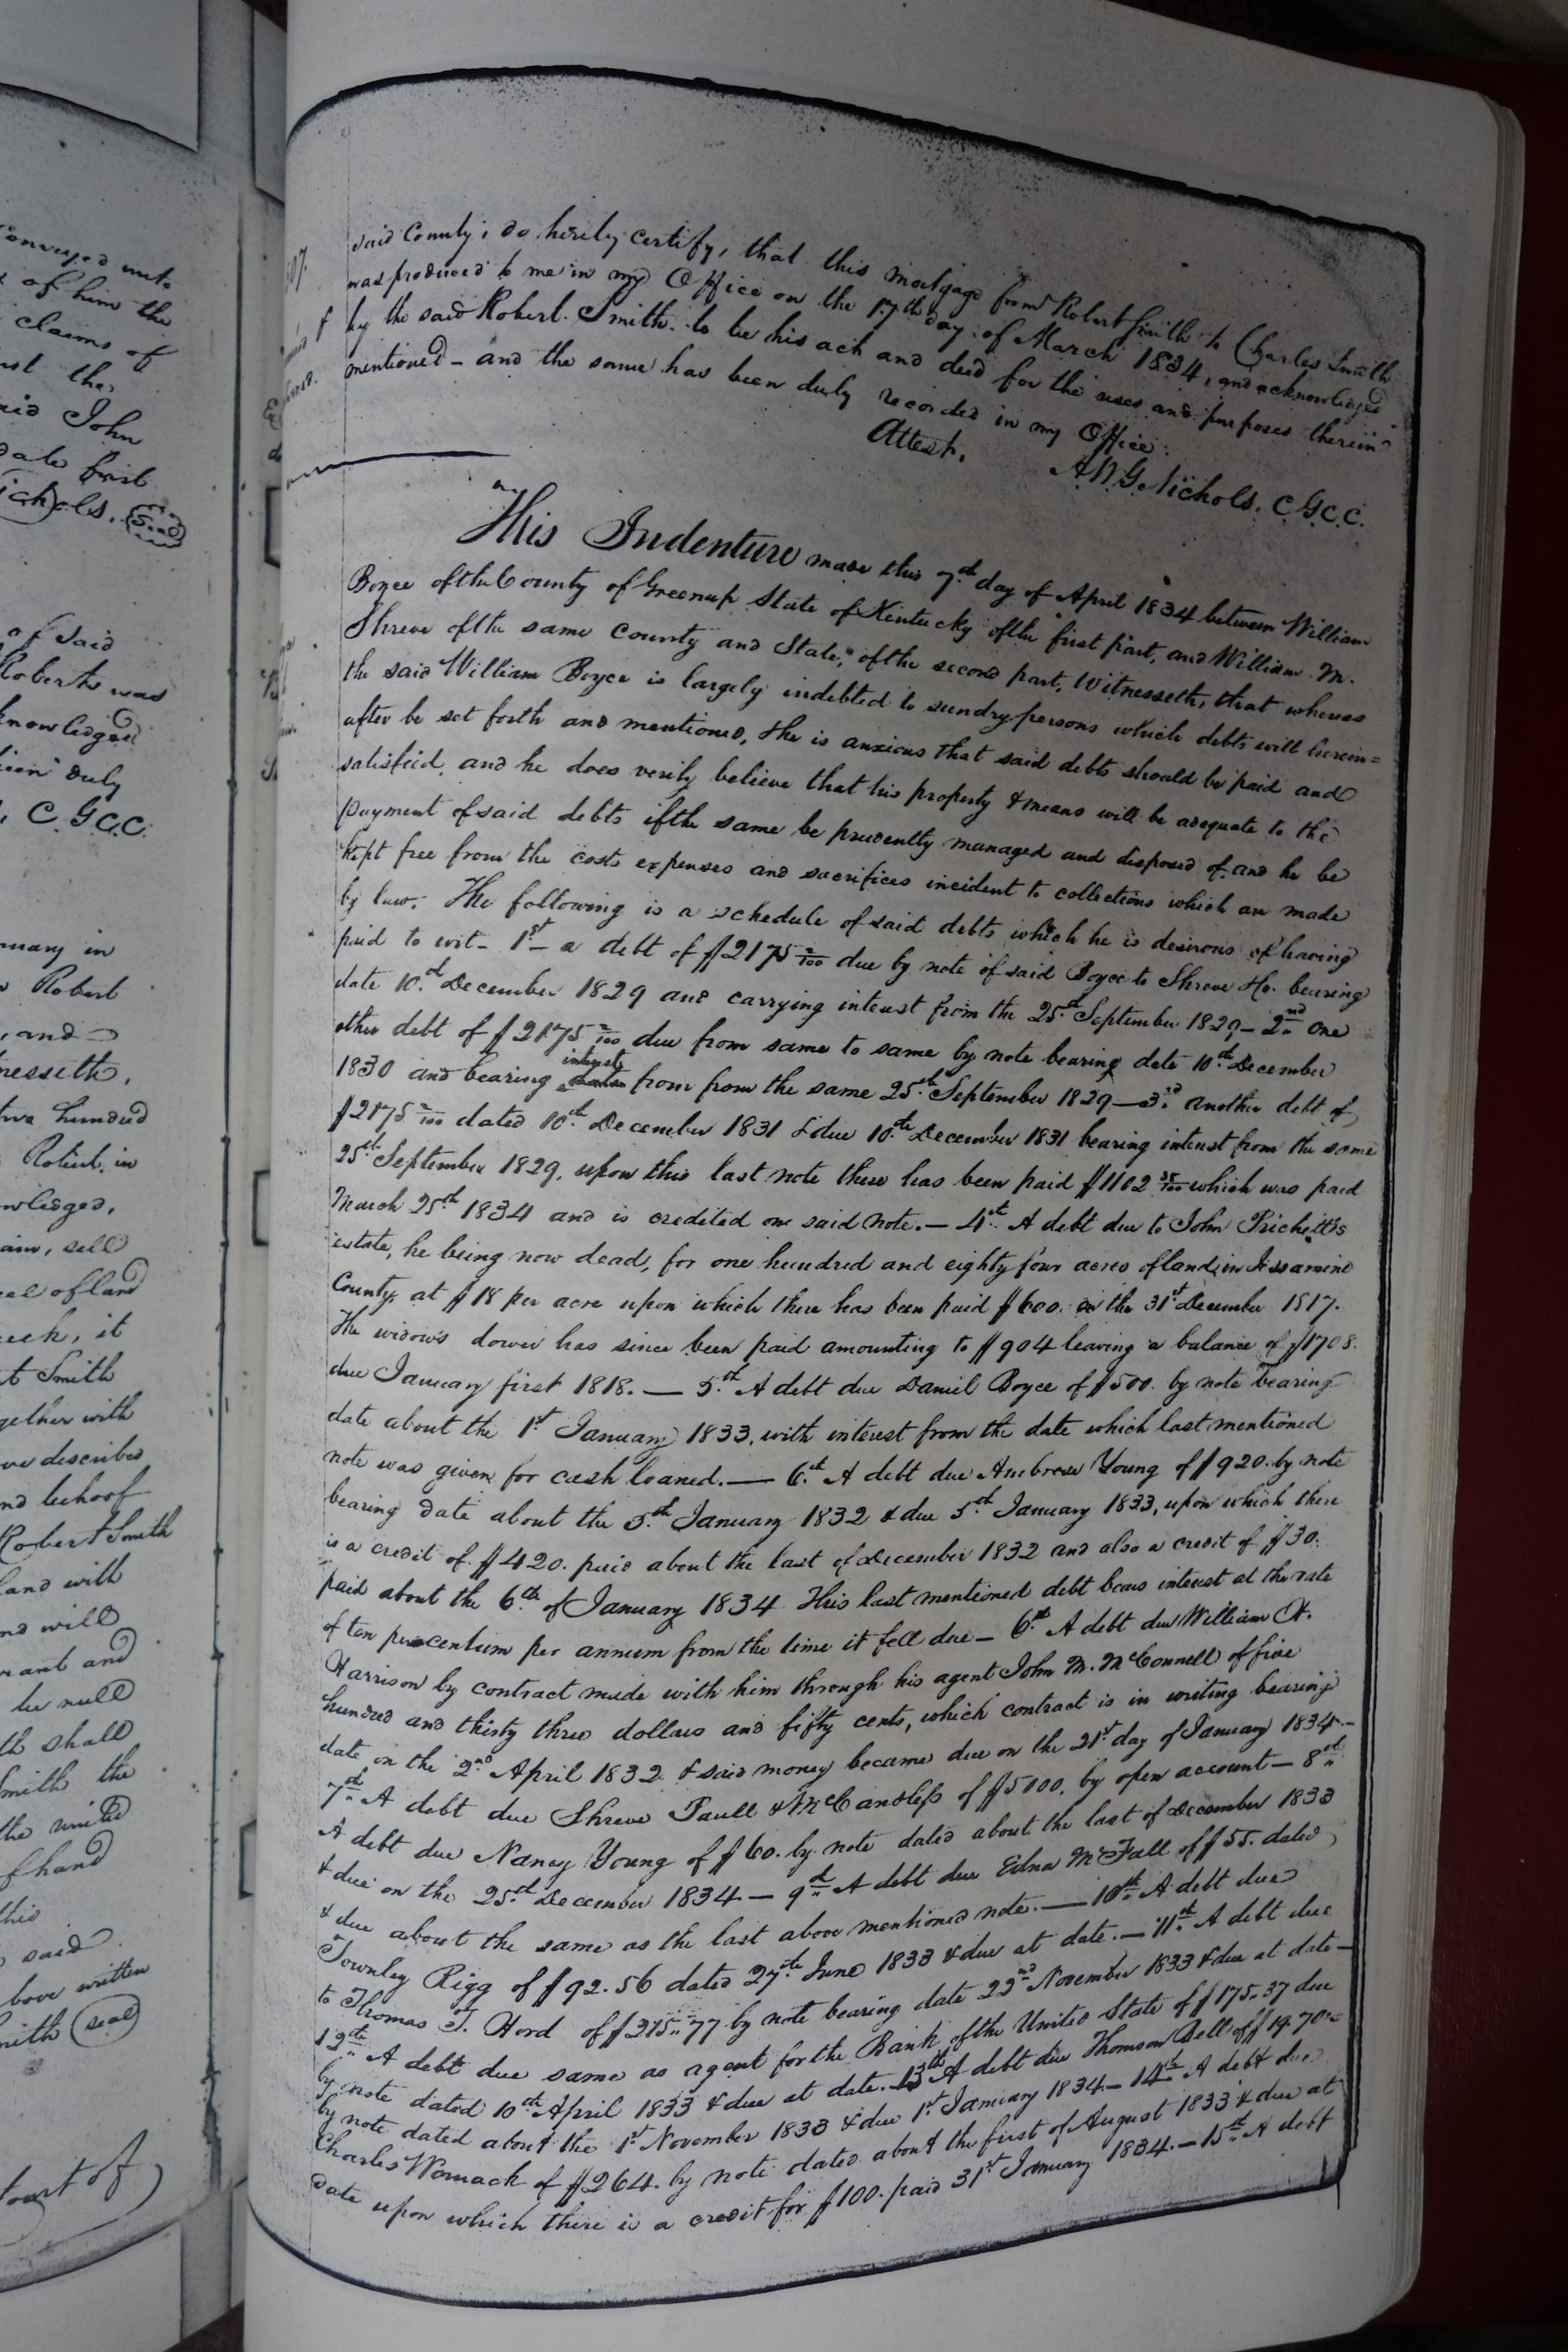 Conveyed unto
of him the
claims of
the
said John
date first
Nichols. Seal
of said
Roberts was
knowledged
duly
C. G.C.C.
in
Robert
, and
nesseth,
hundred
Robert, in
wledged,
sell
of land
it
Smith
gether with
describes
nd behoof
Robert Smith
land with
nd will
rant and
be null
th shall
Smith the
the
of hand
this
said
bove written
mith (seal)
Court of
said County, do hereby certify, that this mortgage from Robert Smith to Charles Smith
was produced to me in my Office on the 17th day of March 1834, and acknowledged
by the said Robert Smith to be his act and deed for the uses and purposes therein
mentioned - and the same has been duly recorded in my Office.
Attest, A.W.G. Nichols. C.G.C.C.
This Indenture made this 7th day of April 1834 between William
Boyce of the County of Greenup State of Kentucky of the first part, and William M.
Shreve of the same County and State, of the second part, Witnesseth, that whereas
the said William Boyce is largely indebted to sundry persons which debts will herein=
after be set forth and mentioned, & he is anxious that said debts should be paid and
satisfied, and he does verily believe that his property & means will be adequate to the
payment of said debts if the same be prudently managed and disposed of and he be
kept free from the costs expenses and sacrifices incident to collections which are made
by law. The following is a schedule of said debts which he is desirous of having
paid to wit - 1st - a debt of $2175 2/100 due by note of said Boyce to Shreve Ho. bearing
date 10th December 1829 and carrying interest from the 25th September 1829 - 2nd One
other debt of $2175 2/100 due from same to same by note bearing date 10th December
1830 and bearing interest from from the same 25th September 1829 — 3rd another debt of
$2175 2/100 dated 10th December 1831 & due 10th December 1831 bearing interest from the same
25th September 1829, upon this last note there has been paid $1102 which was paid
March 25th 1834 and is credited on said note. — 4th A debt due to John Prichett's
estate, he being now dead, for one hundred and eighty four acres of land in Jessamine
County at $18 per acre upon which there has been paid $600. on the 31st December 1817.
The widow's dower has since been paid amounting to $904 leaving a balance of $1708.
due January first 1818. — 5th A debt due Daniel Boyce of $500. by note bearing
date about the 1st January 1833, with interest from the date which last mentioned
note was given for cash loaned. — 6th A debt due Ambrose Young of $920. by note
bearing date about the 5th January 1832 & due 5th January 1833, upon which there
is a credit of $420. paid about the last of December 1832 and also a credit of $30.
paid about the 6th of January 1834 This last mentioned debt bears interest at the rate
of ten per centum per annum from the time it fell due - 6th A debt due William H.
Harrison by contract made with him through his agent John M. McConnell of five
hundred and thirty three dollars and fifty cents, which contract is in writing bearing
date in the 2nd April 1832 & said money became due on the 21st day of January 1834 -
7th A debt due Shreve Paull & McCandless of $5000. by open account - 8th
A debt due Nancy Young of $60. by note dated about the last of December 1833
& due on the 25th December 1834 — 9th A debt due Edna McFall of $55. dated
& due about the same as the last above mentioned note. — 10th A debt due
Townley Rigg of $92.56 dated 27th June 1833 & due at date. — 11th A debt due
to Thomas T. Hord of $215.77 by note bearing date 22nd November 1833 & due at date —
12th A debt due same as agent for the Bank of the United State of $175.37 due
by note dated 10th April 1833 & due at date. 13th A debt due Thomson Bell of $14.70
by note dated about the 1st November 1833 & due 1st January 1834 - 14th A debt due
Charles Womack of $264. by note dated about the first of August 1833 & due at
date upon which there is a credit for $100. paid 31st January 1834. — 15th A debt